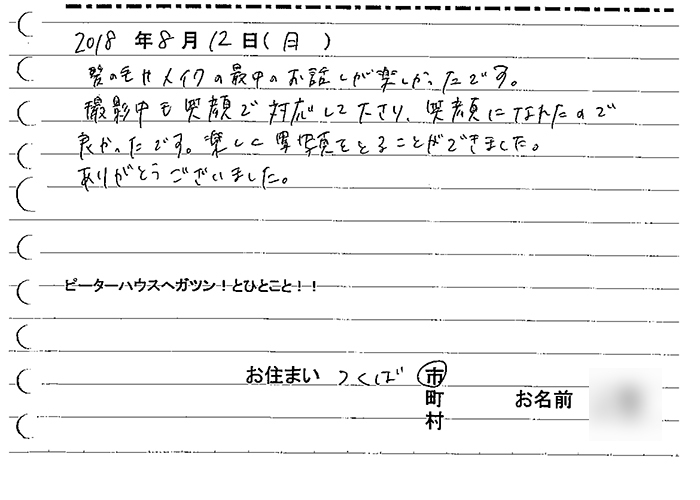 2018 年 8 月 12 日 ( 日 )
髪の毛やメイクの最中のお話しが楽しかったです。
撮影中も笑顔で対応して下さり、笑顔になれたので
良かったです。楽しく写真をとることができました。
ありがとうございました。
ピーターハウスへガツン！とひとこと！！
お住まい つくば 市
町
村
お名前